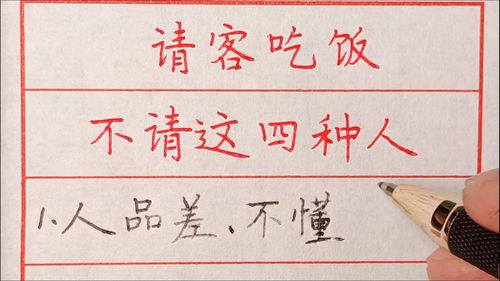 请客吃饭
不请这四种人
1.人品差、不懂